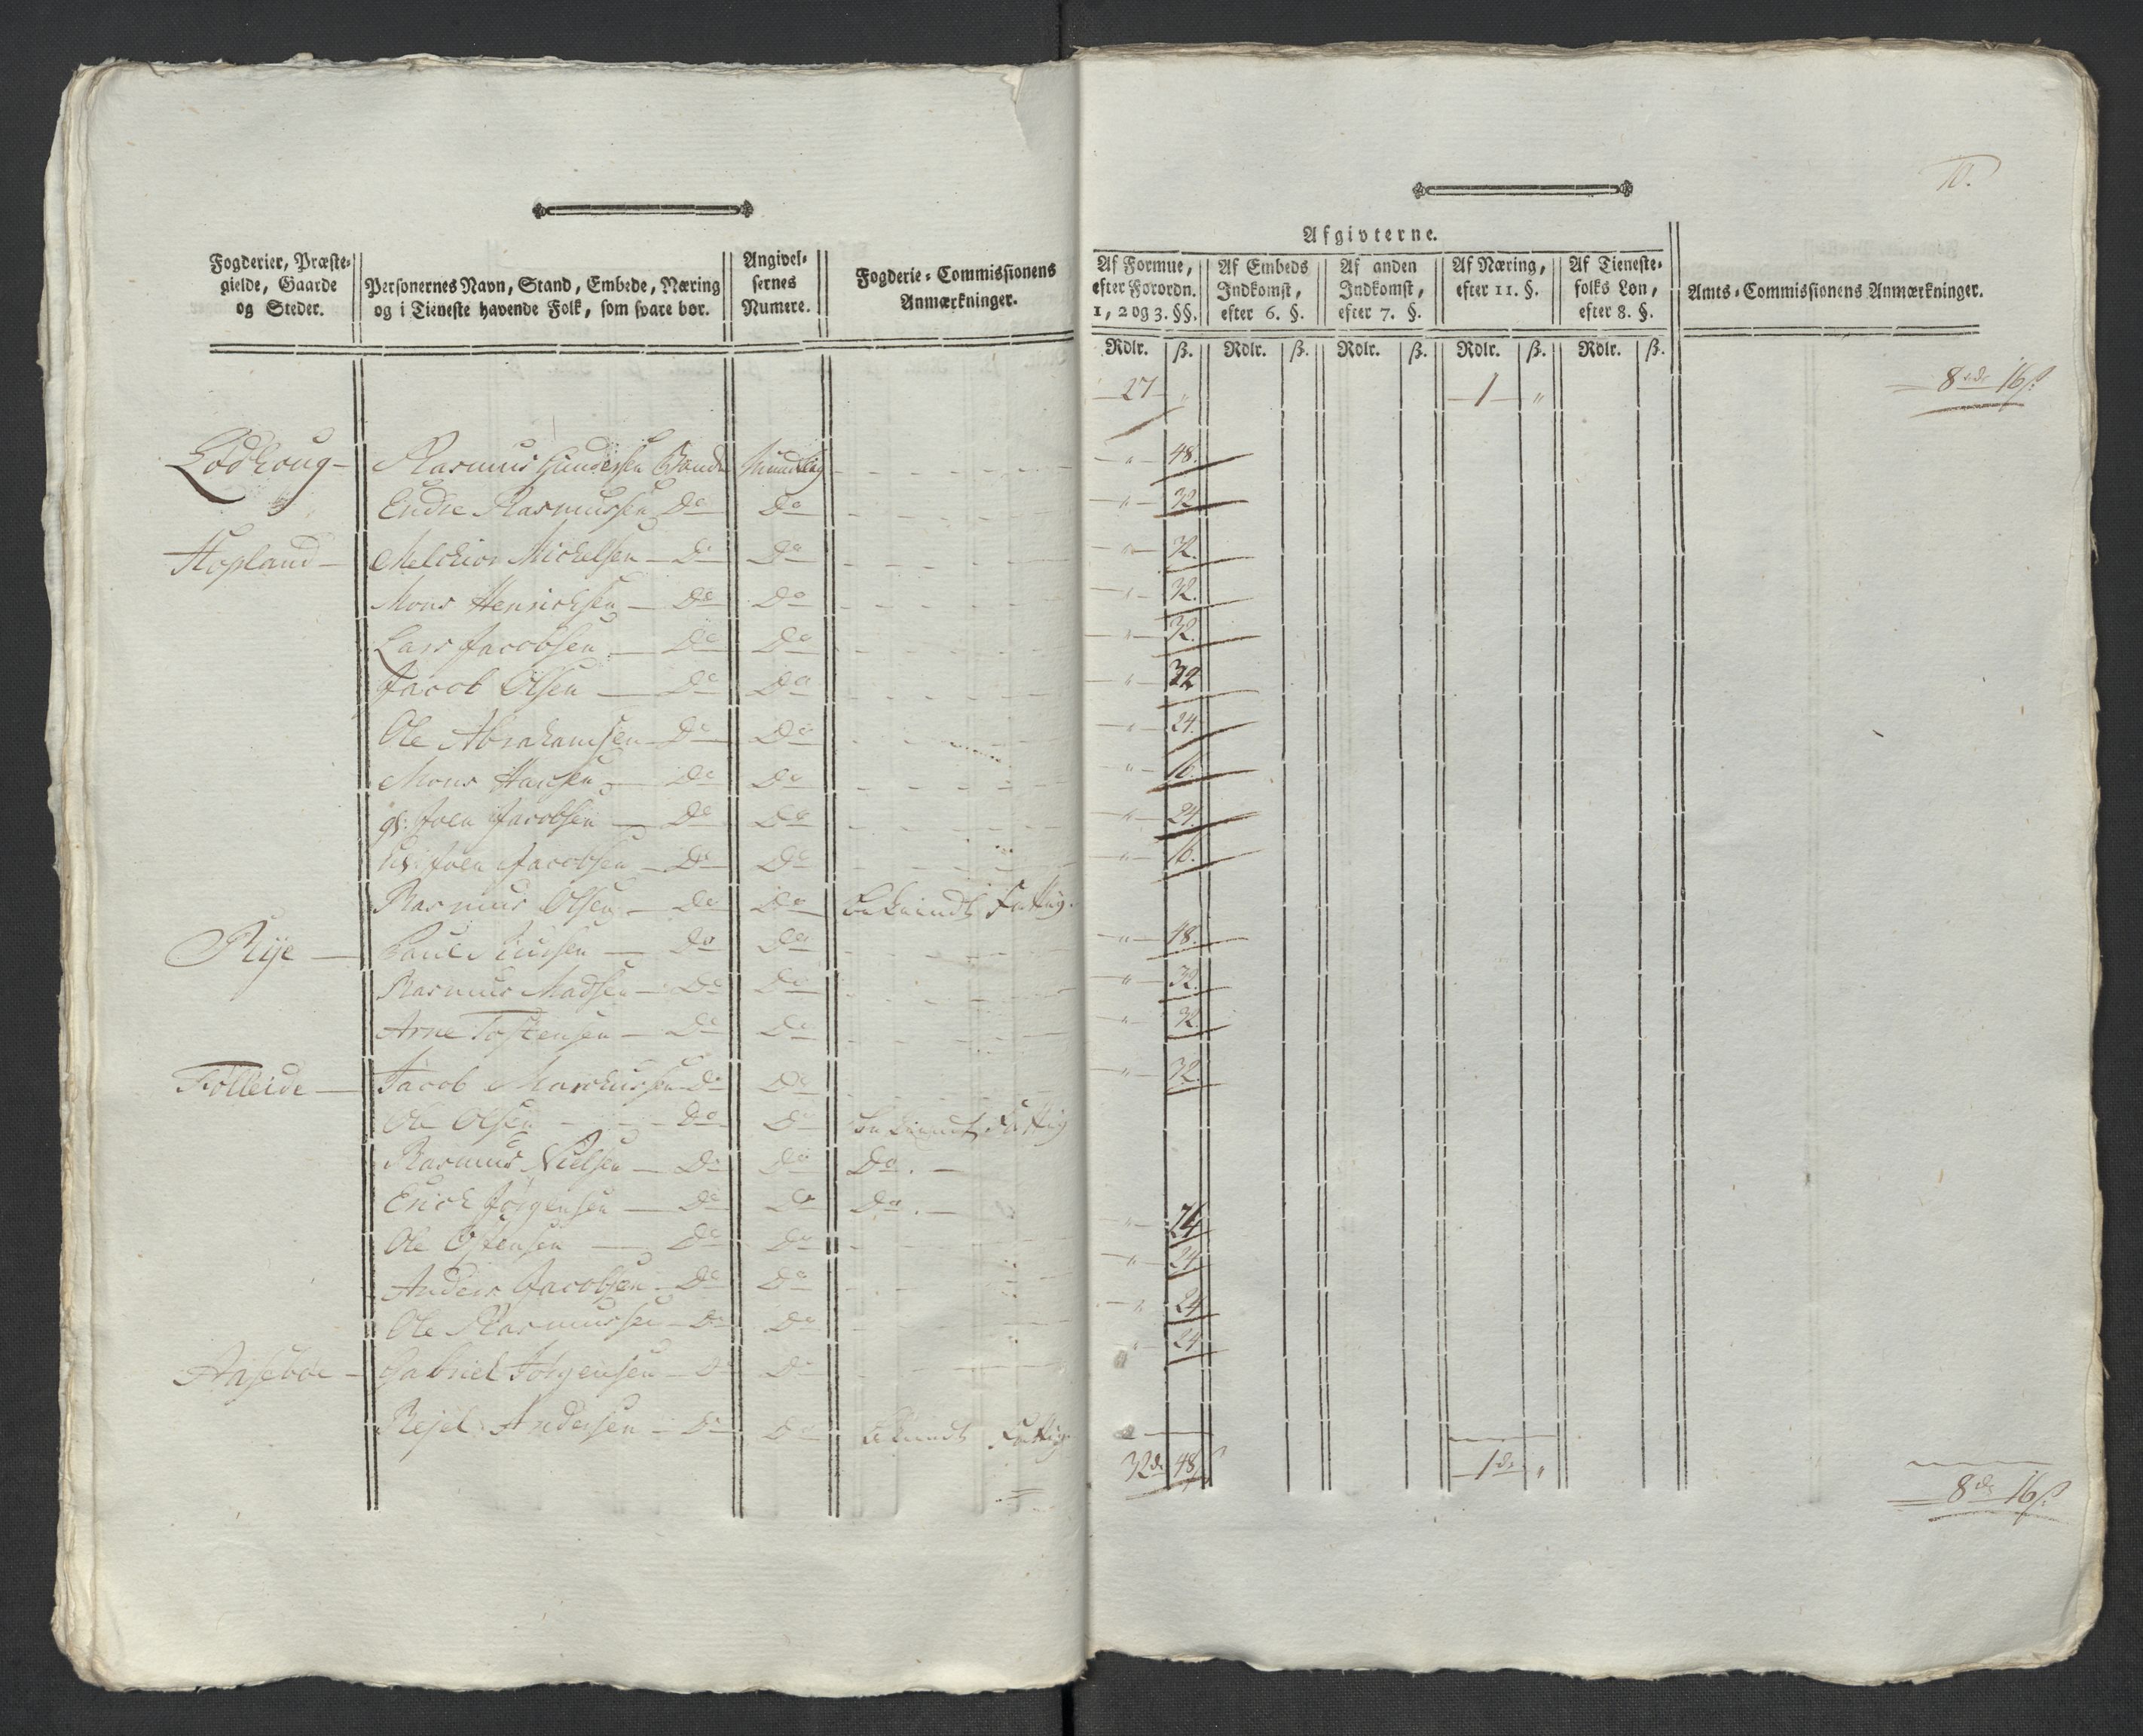 10.
Afgivterne.
Fogderier, Præste-
gielde, Gaarde
og Steder.
Personernes Navn, Stand, Embede, Næring
og i Tieneste havende Folk, som svare bør.
Angivel-
sernes
Numere.
Fogderie-Commissionens
Anmærkninger.
Af Formue,
efter Forordn.
1, 2 og 3. §§.
Af Embeds
Indkomst,
efter 6. §.
Af anden
Indkomst,
efter 7. §.
Af Næring,
efter 11. §.
Af Tieneste-
folks Løn,
efter 8. §.
Amts-Commissionens Anmærkninger.
Rdlr. ß. Rdlr. ß. Rdlr. ß. Rdlr. ß. Rdlr. ß.
27 " 1 " 8 rdr 16 ß
Rasmus Bonde Mundtlig " 48.
Endre Rasmussen Do Do " 32
Hopland Melchior Michelsen Do Do " 32.
Mons Henrichsen Do Do " 32.
Lars Jacobsen Do Do " 32.
Jacob Olsen Do Do " 32
Ole Abrahamsen Do Do " 24.
Mons Hansen Do Do " 16.
gl: Joen Jacobsen Do Do " 24.
ug: Joen Jacobsen Do Do " 16.
Rasmus Olsen Do Do bekiendt Fattig.
Rije Do Do " 48.
Rasmus Madsen Do Do " 32.
Arne Tostensen Do Do " 32.
Følleide Jacob Marchussen Do Do " 32.
Ole Olsen Do Do bekiendt Fattig
Rasmus Nielsen Do Do Do.
Erich Jørgensen Do Do Do.
Ole Do Do " 24
Anders Jacobsen Do Do " 24
Ole Rasmussen Do Do " 24
Aasebøe Gabriel Jørgensen Do Do " 24
Andersen Do Do bekiendt Fattig
32 dr 48 ß 1 dr " 8 dr 16 ß